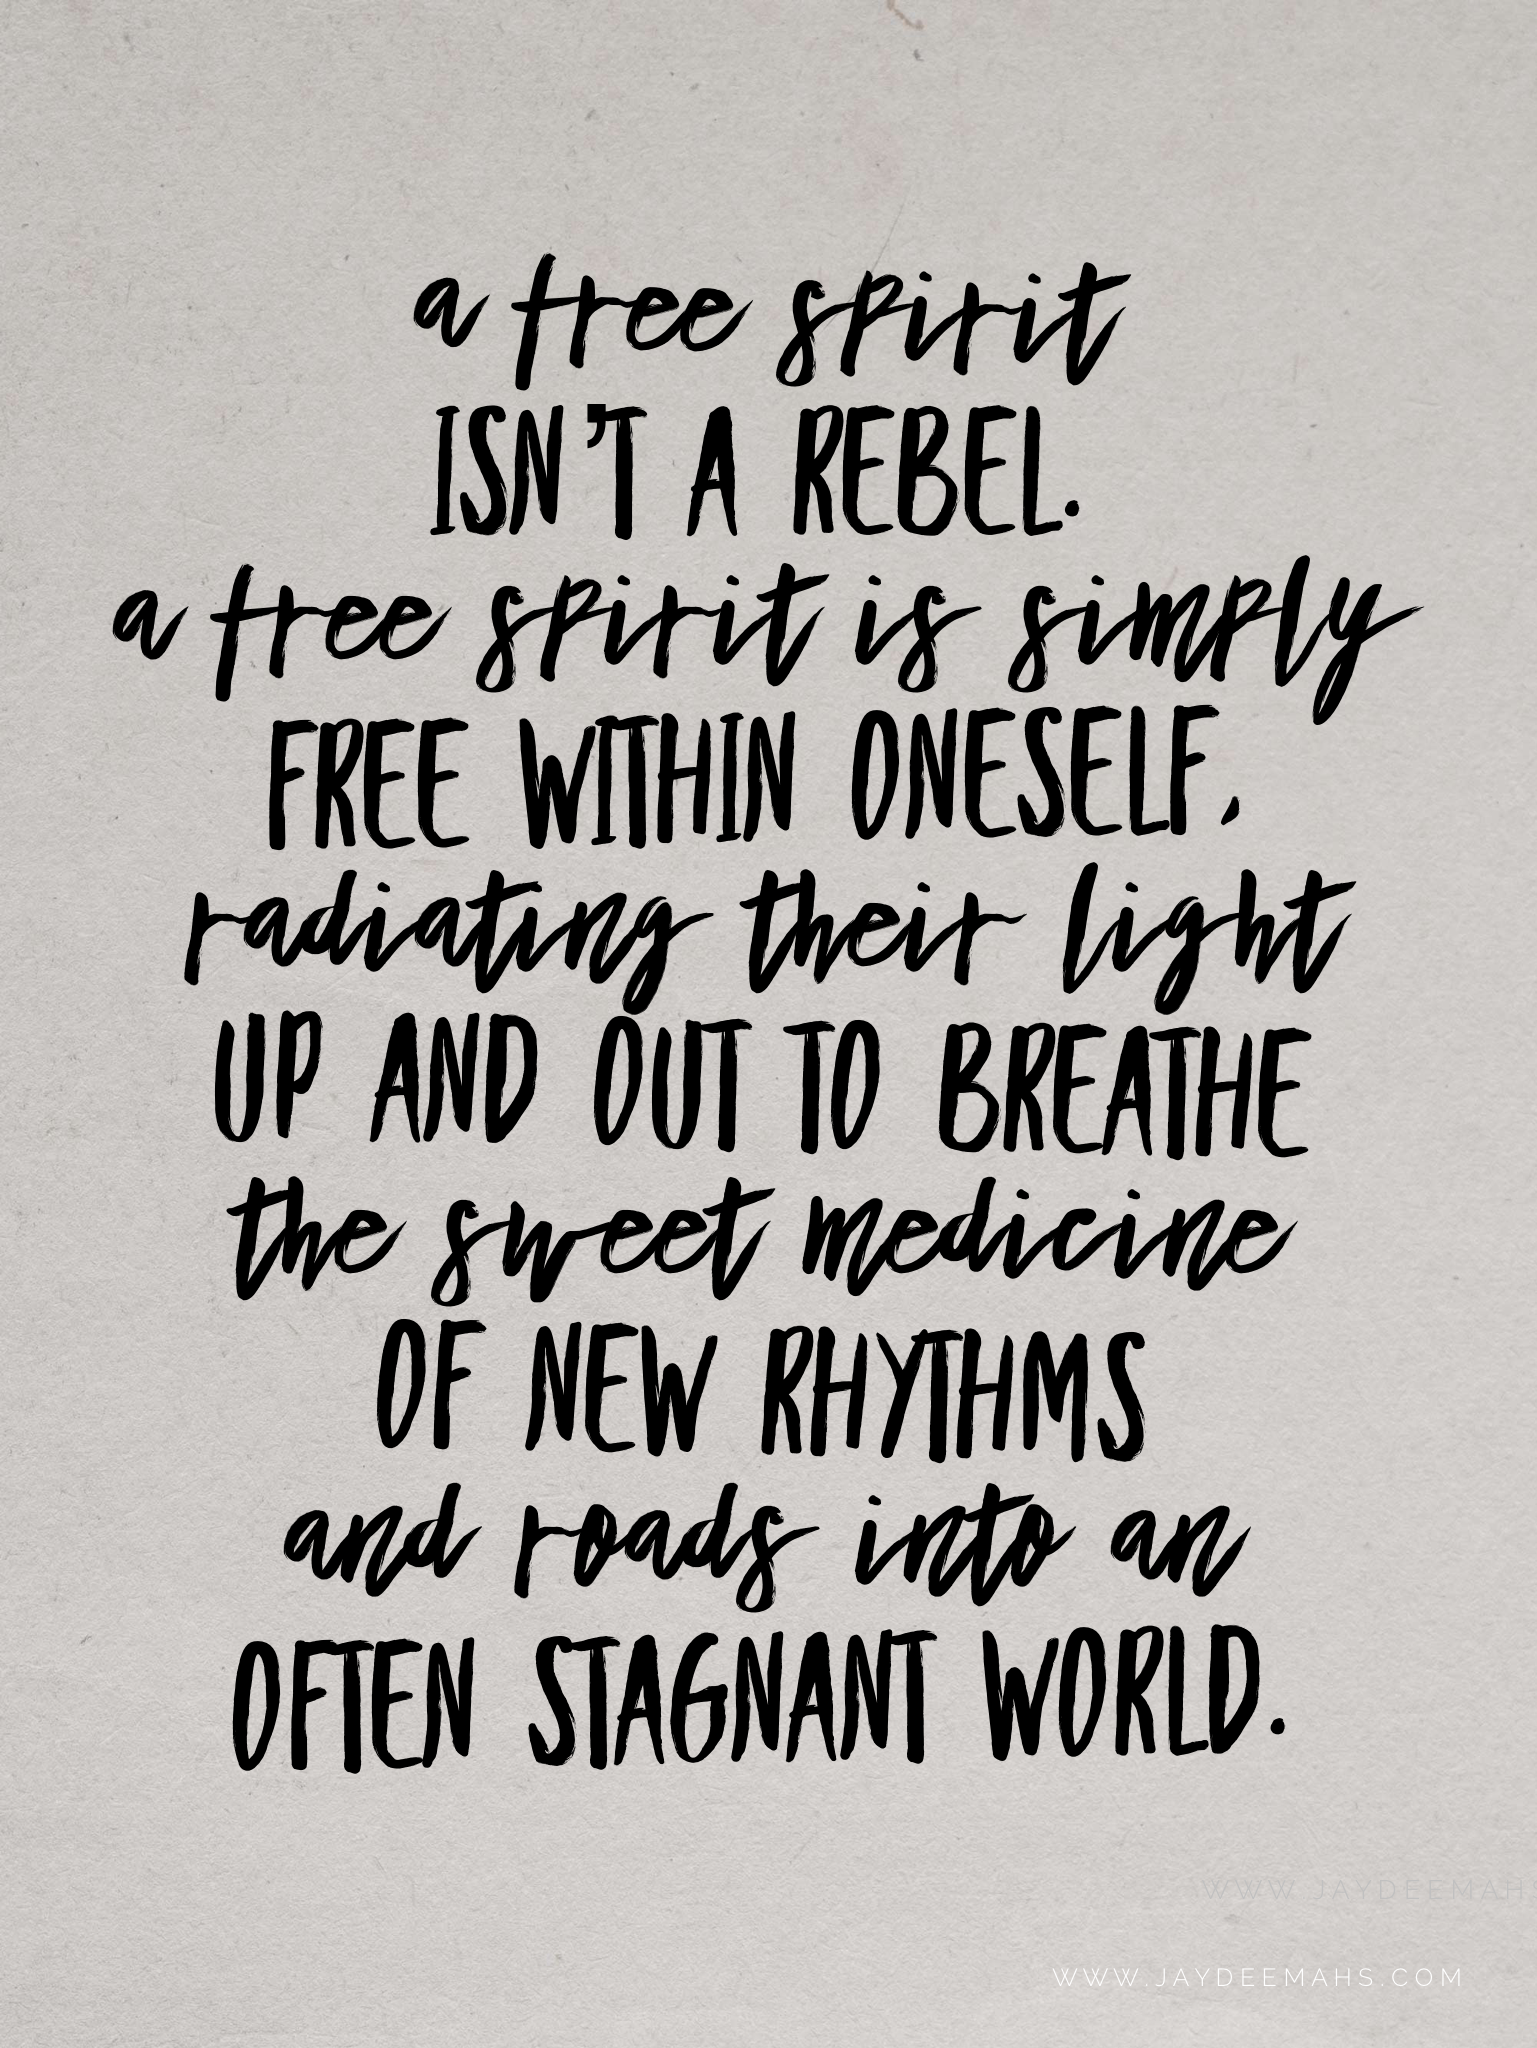 a free spirit
ISN'T A REBEL.
a free spirit is simply
FREE WITHIN ONESELF,
radiating their light
UP AND OUT TO BREATHE
the sweet medicine
OF NEW RHYTHMS
and roads into an
OFTEN STAGNANT WORLD.
WWW.JAYDEEMAH
WWW.JAYDEEMAHS.COM